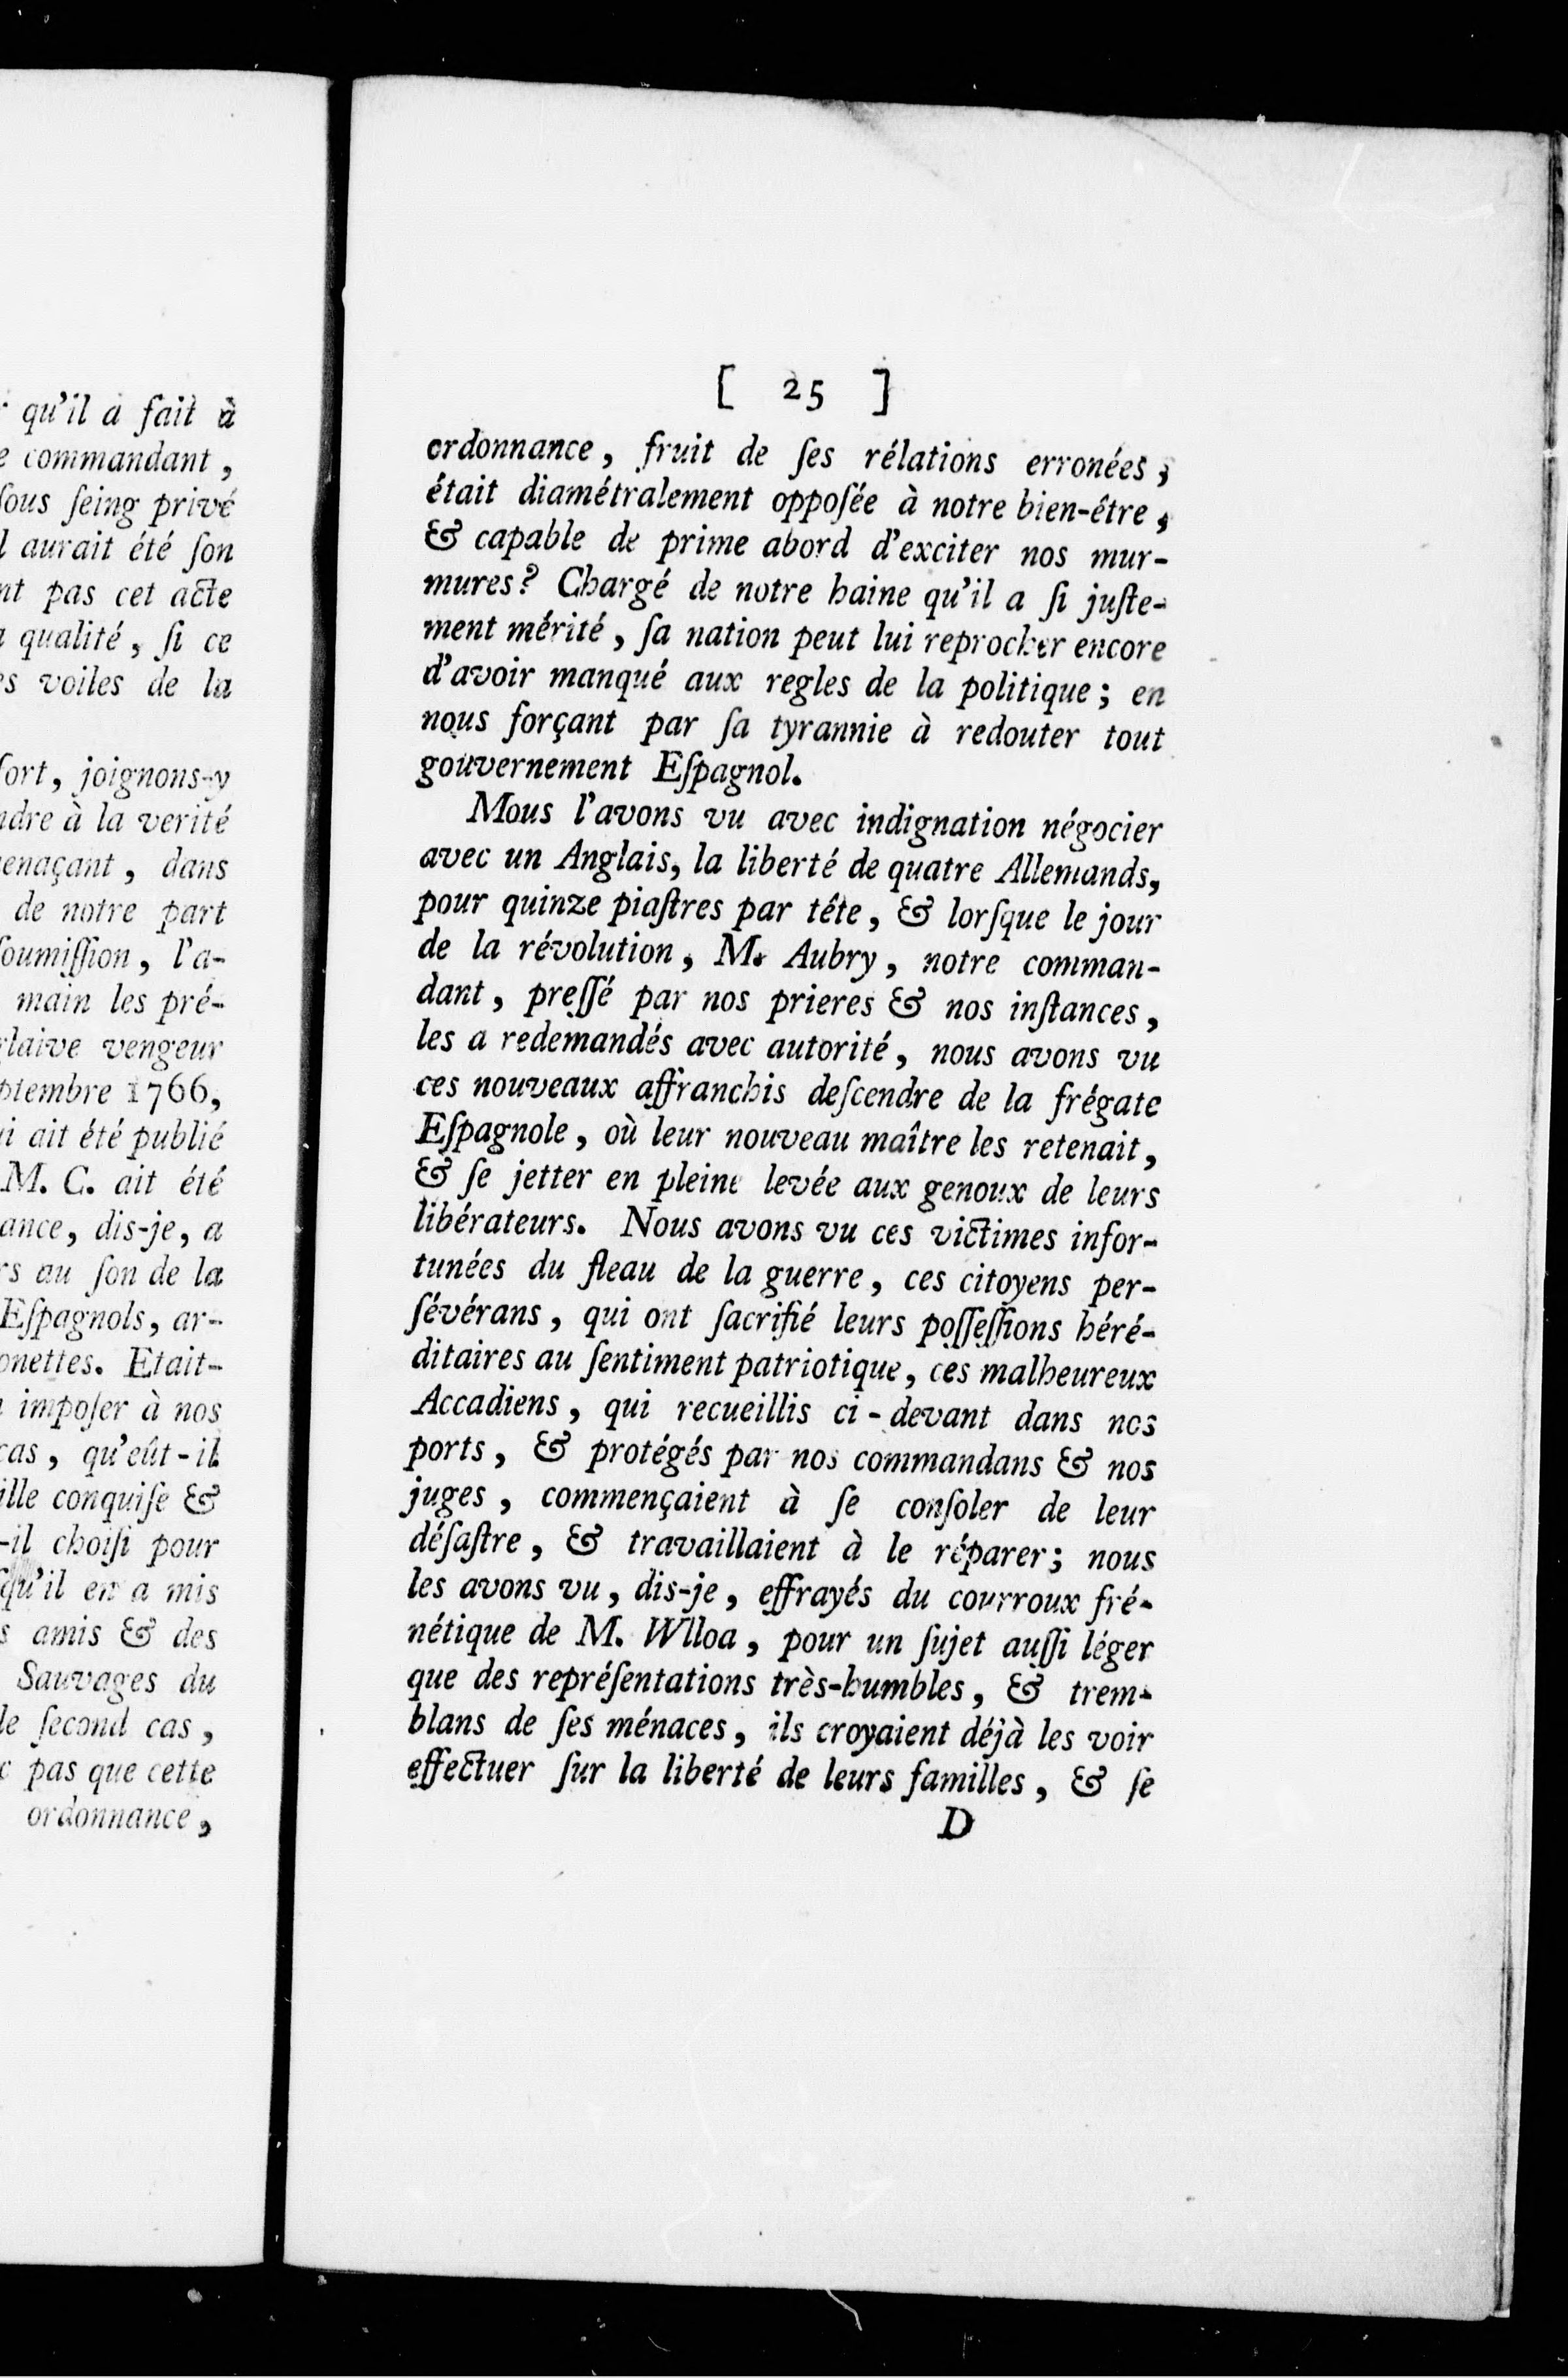 qu'il a fait à
commandant,
ſous ſeing privé
aurait été ſon
pas cet acte
qualité, ſi ce
voiles de la
ſort, joignons-y
à la verité
dans
de notre part
ſoumiſſion, l'a-
main les pré-
vengeur
1766,
ait été publié
M. C. ait été
dis-je, a
au ſon de la
Eſpagnols, ar-
Etait-
impoſer à nos
cas, qu'eût-il
conquiſe &
-il choiſi pour
qu'il en a mis
amis & des
Sauvages du
ſecond cas,
pas que cette
ordonnance,
[ 25 ]
ordonnance, fruit de ſes rélations erronées,
était diamétralement oppoſée à notre bien-être,
& capable de prime abord d'exciter nos mur-
mures? Chargé de notre haine qu'il a ſi juſte-
ment mérité, ſa nation peut lui reprocher encore
d'avoir manqué aux regles de la politique; en
nous forçant par ſa tyrannie à redouter tout
gouvernement Eſpagnol.
Mous l'avons vu avec indignation négocier
avec un Anglais, la liberté de quatre Allemands,
pour quinze piaſtres par tête, & lorſque le jour
de la révolution, M. Aubry, notre comman-
dant, preſſé par nos prieres & nos inſtances,
les a redemandés avec autorité, nous avons vu
ces nouveaux affranchis deſcendre de la frégate
Eſpagnole, où leur nouveau maître les retenait,
& ſe jetter en pleine levée aux genoux de leurs
libérateurs. Nous avons vu ces victimes infor-
tunées du fleau de la guerre, ces citoyens per-
ſévérans, qui ont ſacrifié leurs poſſeſſions héré-
ditaires au ſentiment patriotique, ces malheureux
Accadiens, qui recueillis ci-devant dans nos
ports, & protégés par nos commandans & nos
juges, commençaient à ſe conſoler de leur
déſaſtre, & travaillaient à le réparer; nous
les avons vu, dis-je, effrayés du courroux fré-
nétique de M. Wlloa, pour un ſujet auſſi léger
que des repréſentations très-humbles, & trem-
blans de ſes ménaces, ils croyaient déjà les voir
effectuer ſur la liberté de leurs familles, & ſe
D